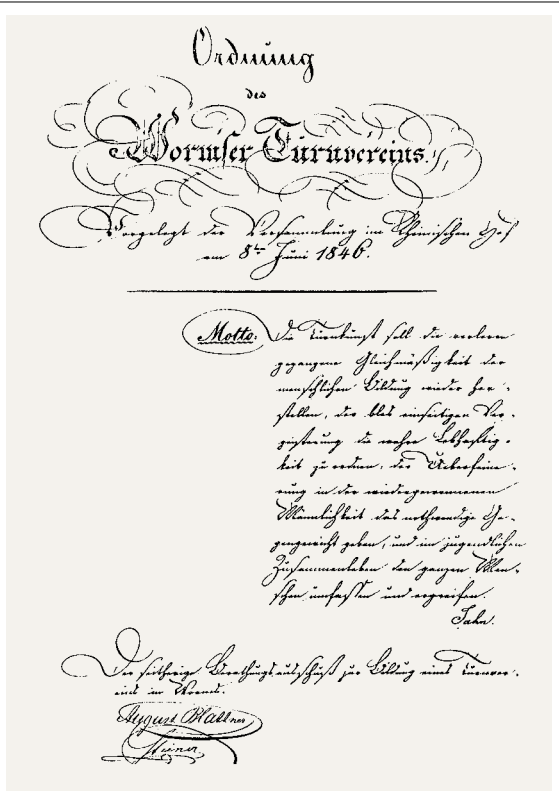 Ordnung
des
Wormser Turnvereins.
Vorgelegt der Versammlung im Rheinischen Hof
am 8ten Juni 1846.
Motto: Die Turnkunst soll die verloren
gegangene Gleichmäßigkeit der
menschlichen Bildung wieder her-
stellen, der blos einseitigen Ver-
geistigung die wahre Leibhaftig-
keit zu ordnen, der Ueberfeine-
rung in der wiedergewonnenen
Männlichkeit das nothwendige Ge-
gengewicht geben, und im jugendlichen
Zusammenleben den ganzen Men-
schen umfassen und ergreifen.
Jahn.
Der seitherige Berathungsausschuß zur Bildung eines Turnver-
eins in Worms.
August Blattner